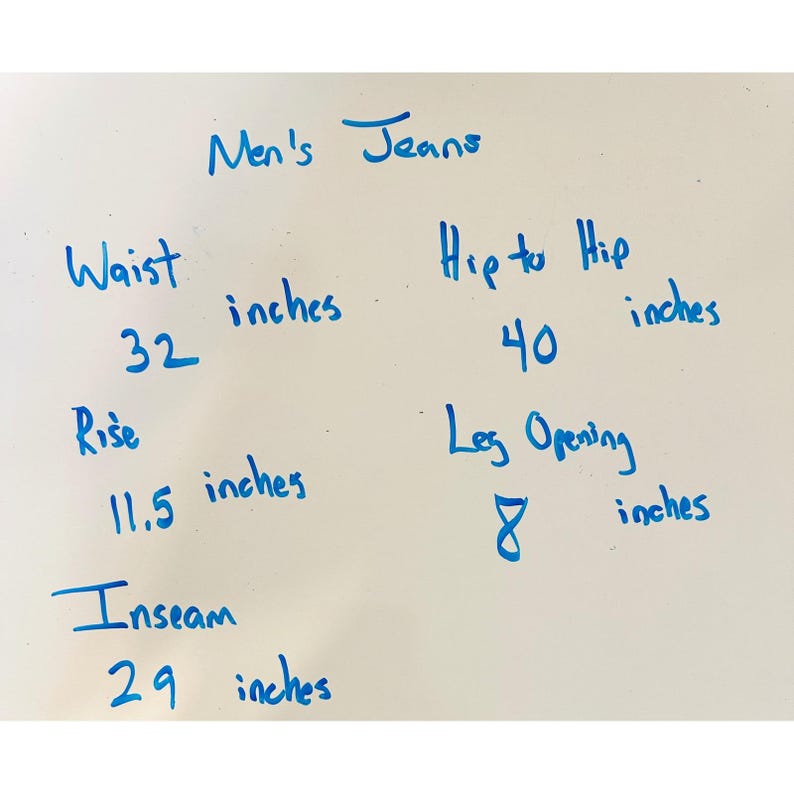 Men's Jeans
Waist
32 inches
Rise
11.5 inches
Inseam
29 inches
Hip to Hip
40 inches
Leg Opening
8 inches